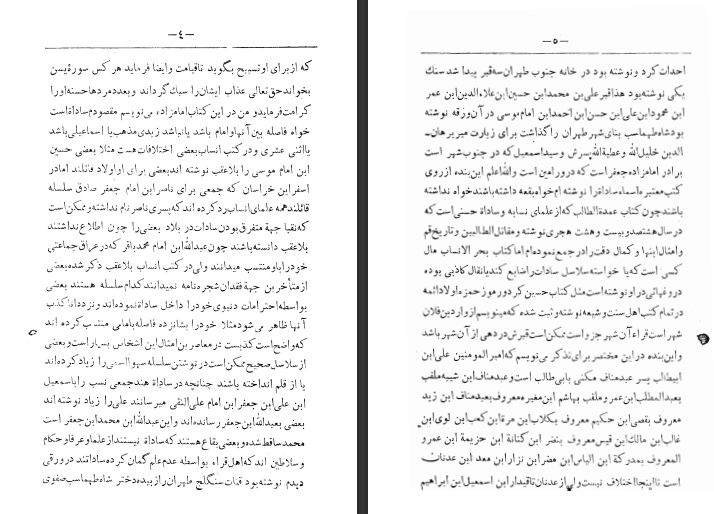 — ٤ —
که از برای او تسبیح بگوید تا قیامت وایضا فرماید هر کس سورۀ یسن
بخواند حق تعالی عذاب ایشان را سبک گرداند و بعدد مردها حسنه اورا
کرامت فرماید و من در این کتاب امامزاده می نویسم مقصودم ساداة است
خواه فاصله بین آنها و امام باشد یا نباشد زیدی مذهب یا اسماعیلی باشد
یا اثنی عشری و در کتب انساب بعضی اختلافات هست مثلا بعضی حسین
ابن امام موسی را بلاعقب نوشته اند بعضی برای او اولاد قائلند امادر
اسفراین خراسان که جمعی برای ناصر ابن امام جعفر صادق سلسله
قائلند همه علمای انساب رد کرده اند که پسری ناصر نام نداشته و ممکن است
که نقبا جهة متفرق بودن سادات در بلاد بعضی را چون اطلاع نداشتند
بلاعقب دانسته باشند چون عبدالله ابن امام محمد باقر که در عراق جماعتی
خود را باو منتسب میدانند ولی در کتب انساب بلاعقب ذکر شده بعضی
از متأخرین جهة فقدان شجره نامه نمیدانند کدام سلسله هستند بعضی
بواسطه احترامات دنیوی خود را داخل ساداة نموده اند و نزد دانا کذب
آنها ظاهر می شود مثلا خود را بشانزده فاصله بامامی منتسب کرده اند
که واضح است کذبست در معاصرین امثال این اشخاص بسیار است و بعضی
از سلاسل صحیح ممکن است در نوشتن سلسله سهوا اسمی را زیاد کرده اند
یا از قلم انداخته باشند چنانچه در ساداة هند جمعی نسب را باسمعیل
ابن علی ابن جعفر ابن امام علی النقی میرسانند علی را زیاد نوشته اند
بعضی بعبدالله ابن جعفر رسانده اند و این عبدالله ابن محمد ابن جعفر است
محمد ساقط شده و بعضی بقاع هستند که ساداة نیستند از علما و عرفا و حکام
و سلاطین اند که اهل قراء بواسطه عدم علم گمان کرده ساداتند در ورقی
دیدم نوشته بود قنات سنگلج طهران را زبیده دختر شاه طهماسب صفوی
— ٥ —
احداث کرد و نوشته بود در خانه جنوب طهران سه قبر پیدا شد سنک
یکی نوشته بود هذا قبر علی بن محمد ابن حسین ابن علاء الدین ابن عمر
ابن محمود ابن علی ابن حسن ابن احمد ابن امام موسی در آن ورقه نوشته
بود شاه طهماسب بنای شهر طهران را گذاشت برای زیارت میر برهان
الدین خلیل الله و عطیة الله پسرش و سید اسمعیل که در جنوب شهر است
برادر امامزاده جعفر است که در ورامین است والله اعلم این بنده از روی
کتب معتبره اسماء ساداة را نوشته ام خواه بقعه داشته باشند خواه نداشته
باشند چون کتاب عمدة الطالب که از علمای نسابه و ساداة حسنی است که
در سال هشتصد و بیست و هشت هجری نوشته و مقاتل الطالبین و تاریخ قم
و امثال اینها و کمال دقت را در جمع نموده ام اما کتاب بحر الانساب مال
کسی است که یا خواسته سلاسل سادات را ضایع کند یا نقال کاذبی بوده
دروغهائی در او نوشته است مثل کتاب حسین کرد و رموز حمزه و لا دائمه
در تمام کتب اهل سنت و شیعه نوشته و ثبت شده که مینویسم از واردین فلان
شهر است قراء آن شهر جزو است ممکن است قبرش در دهی از آن شهر باشد
و این بنده در این مختصر برای تذکر می نویسم که امیر المومنین علی ابن
ابیطالب پسر عبدمناف مکنی بابی طالب است و عبدمناف ابن شیبه ملقب
بعبد المطلب ابن عمرو ملقب بهاشم ابن مغیره معروف بعبدمناف ابن زید
معروف بقصی ابن حکیم معروف بکلاب ابن مرة ابن کعب ابن لوی ابن
غالب ابن مالک ابن قیس معروف بنضر ابن کنانة ابن خزیمة ابن عمرو
المعروف بمدرکة ابن الیاس ابن مضر ابن نزار ابن معد ابن عدنان
است تا اینجا اختلاف نیست ولی از عدنان تا قیدار ابن اسمعیل ابن ابراهیم